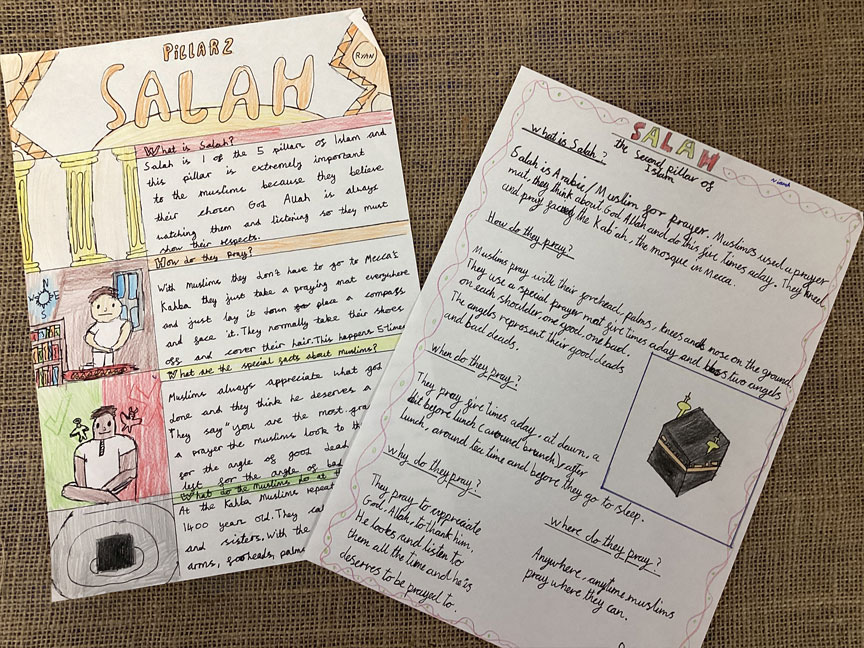 PILLAR 2
SALAH
RYAN
What is Salah?
Salah is 1 of the 5 pillar of Islam and
this pillar is extremely important
to the muslims because they believe
their chosen God Allah is always
watching them and listening so they must
show their respects.
How do they pray?
With muslims they don't have to go to Mecca's
Kahba they just take a praying mat everywhere
and just lay it down place a compass
and face it. They normally take their shoes
off and cover their hair. This happens 5-times
N
E
S
W
What are the special facts about muslims?
Muslims always appreciate what god
done and they think he deserves a
They say "you are the most
a prayer the muslims look to th
for the angle of good dead
for the angle of bad
What do the muslims do at th
At the Kahba muslims repeat
1400 year old. They
and sisters. With the
arms, forheads, palms
SALAH
the second pillar of
Islam
What is Salah?
Salah is Arabic/Muslim for prayer. Muslims used a prayer
mat, they think about God Allah and do this five times a day. They kneel
and pray facing the Kab'ah, the mosque in Mecca.
How do they pray?
Muslims pray with their forehead, palms, knees and nose on the ground.
They use a special prayer mat five times a day and two angels
on each shoulder one good, one bad.
The angels represent their good deads
and bad deads.
When do they pray?
They pray five times a day, at dawn, a
bit before lunch (around brunch), after
lunch, around tea time and before they go to sleep.
Why do they pray?
They pray to appreciate
God, Allah, to thank him.
He looks and listen to
them all the time and he is
deserves to be prayed to.
Where do they pray?
Anywhere, anytime muslims
pray where they can.